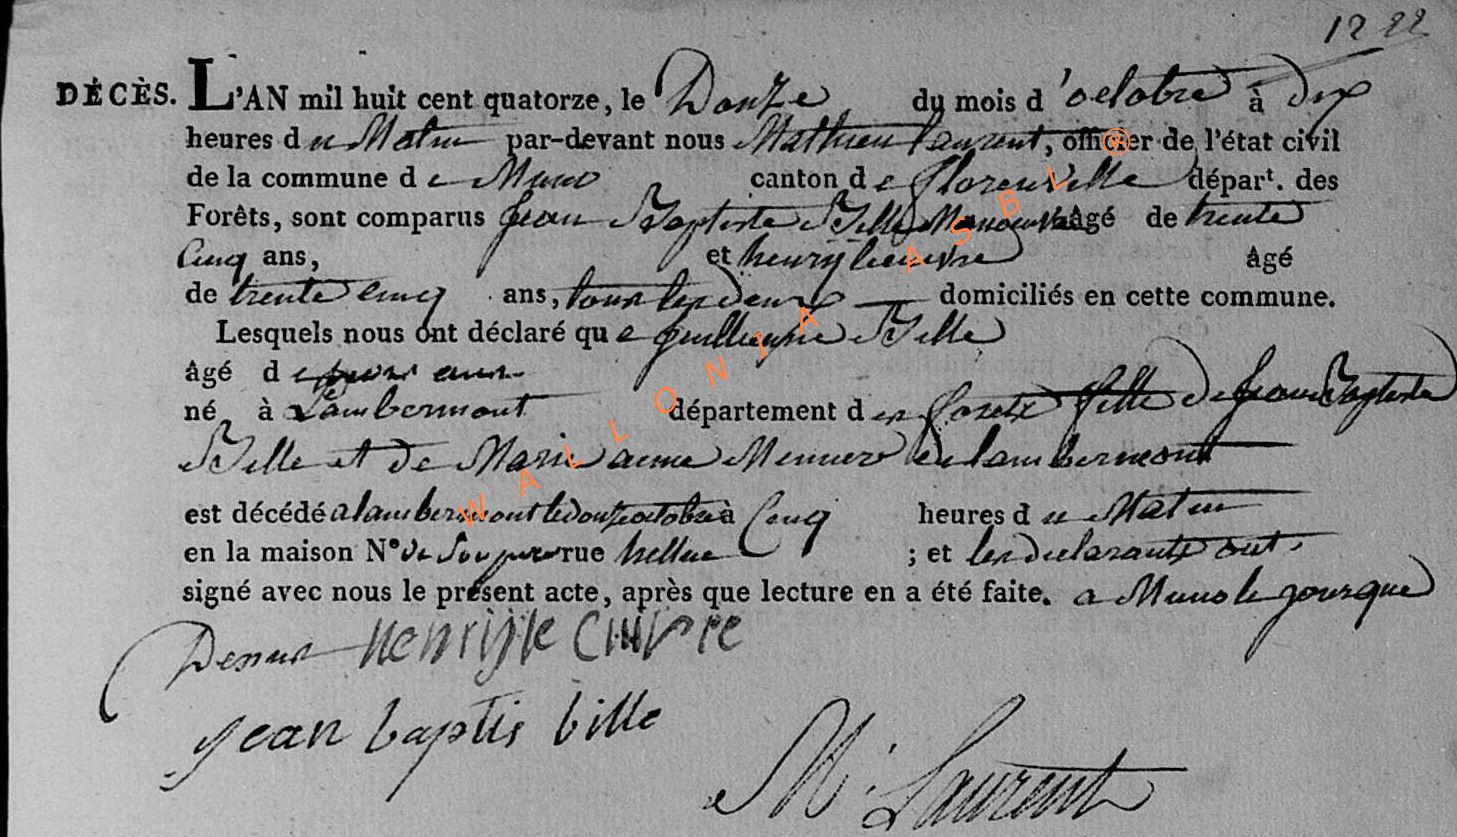 12 22
DÉCÈS. L'AN mil huit cent quatorze, le Douze du mois d'octobre à dix
heures du Matin par-devant nous Mathieu laurent, officier de l'état civil
de la commune de Muno canton de florenville départ. des
Forêts, sont comparus Jean Baptiste Bille Manouvre âgé de trente
Cinq ans, et henry lecuivre âgé
de trente cinq ans, tous les deux domiciliés en cette commune.
Lesquels nous ont déclaré que guillieaume Bille
âgé de
né à Lambermont département des forets fille de Jean Baptiste
Bille et de Marie anne Meunier de lambermont
est décédé a lambermont le douze octobre à Cinq heures du Matin
en la maison N° de Son pere rue ; et les declarants ont
signé avec nous le présent acte, après que lecture en a été faite. a Muno le jour que
Dessus henrij le Cuivre
jean baptis bille
M. Laurent
WALLONIA ASBL®